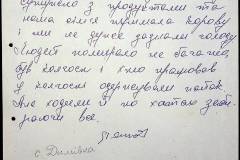 сутужно з продуктами та
наша сім'я тримала корову
і ми не дуже зазнали голоду
Людей померало не багато,
був колгосп і хто працював
у колгоспі одержували пайок.
Але ходили й по хатам заби-
раючи все.
с. Дилівка